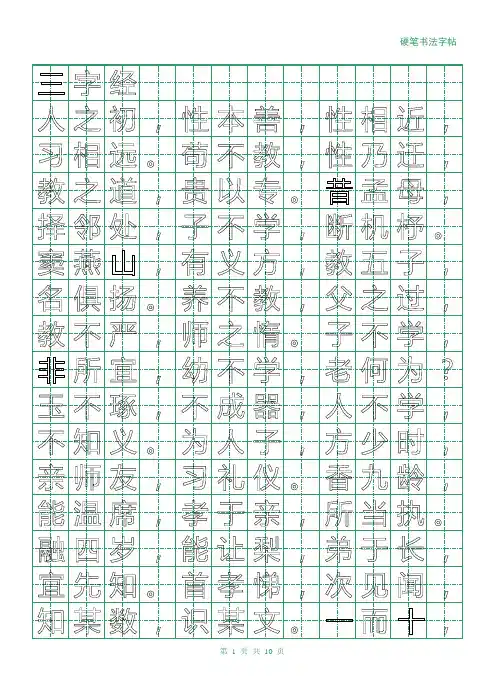 硬笔书法字帖
三字经
人之初,性本善,性相近,
习相远。苟不教,性乃迁,
教之道,贵以专。昔孟母,
择邻处,子不学,断机杼。
窦燕山,有义方,教五子,
名俱扬。养不教,父之过,
教不严,师之惰。子不学,
非所宜,幼不学,老何为?
玉不琢,不成器,人不学,
不知义。为人子,方少时,
亲师友,习礼仪。香九龄,
能温席,孝于亲,所当执。
融四岁,能让梨,弟于长,
宜先知。首孝悌,次见闻,
知某数,识某文。一而十,
第 1 页 共 10 页